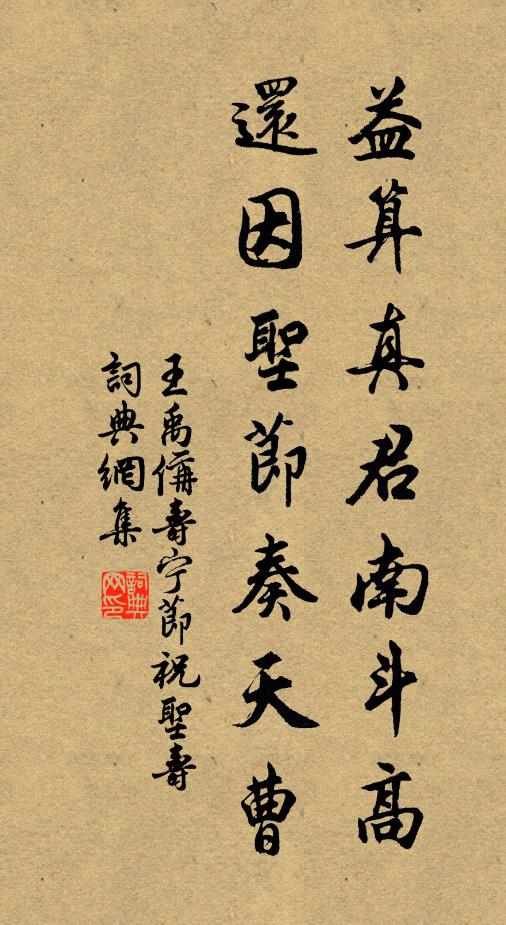 益算真君南斗高
還因聖節奏天曹
王禹偁壽宁節祝聖壽
詞典網集
詞典网印